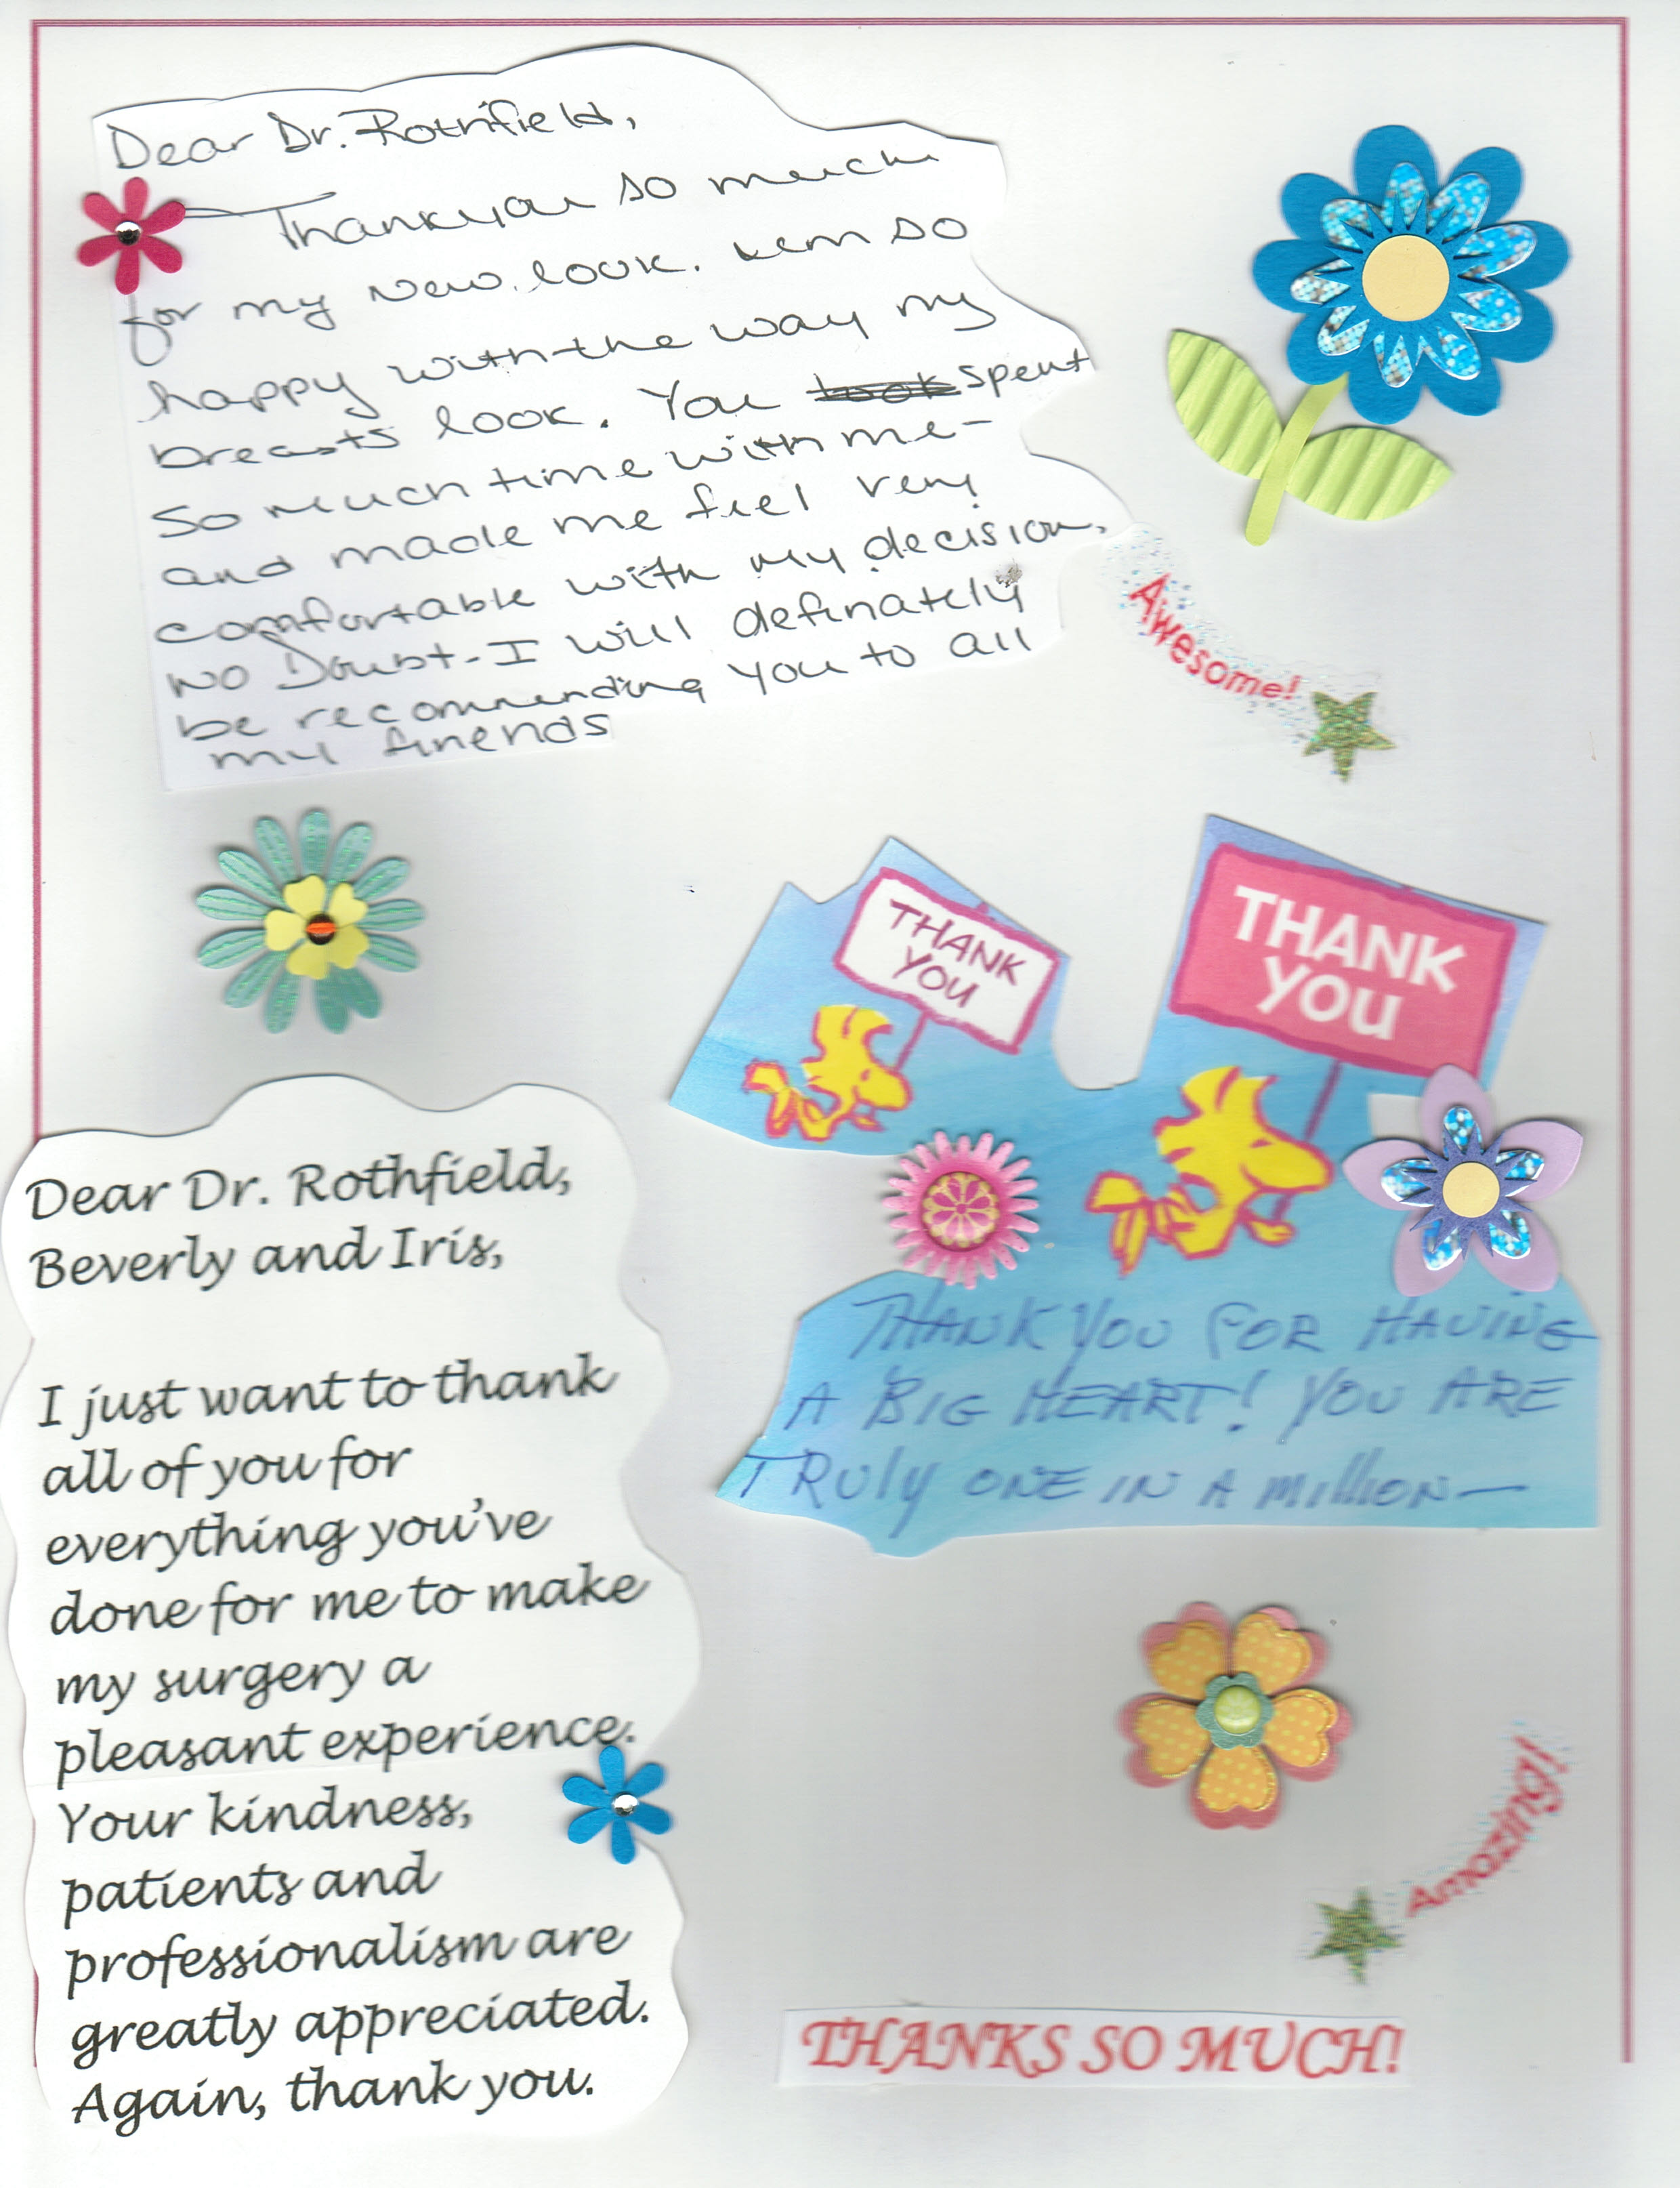 Dear Dr. Rothfield,
Thank you so much
for my new look. I am so
happy with the way my
breasts look. You took spent
so much time with me-
and made me feel very
comfortable with my decision.
No Doubt-I will definately
be recommending you to all
my friends
Awesome!
THANK
YOU
THANK
YOU
THANK YOU FOR HAVING
A BIG HEART! YOU ARE
TRULY ONE IN A MILLION—
Dear Dr. Rothfield,
Beverly and Iris,
I just want to thank
all of you for
everything you've
done for me to make
my surgery a
pleasant experience.
Your kindness,
patients and
professionalism are
greatly appreciated.
Again, thank you.
Amazing!
THANKS SO MUCH!